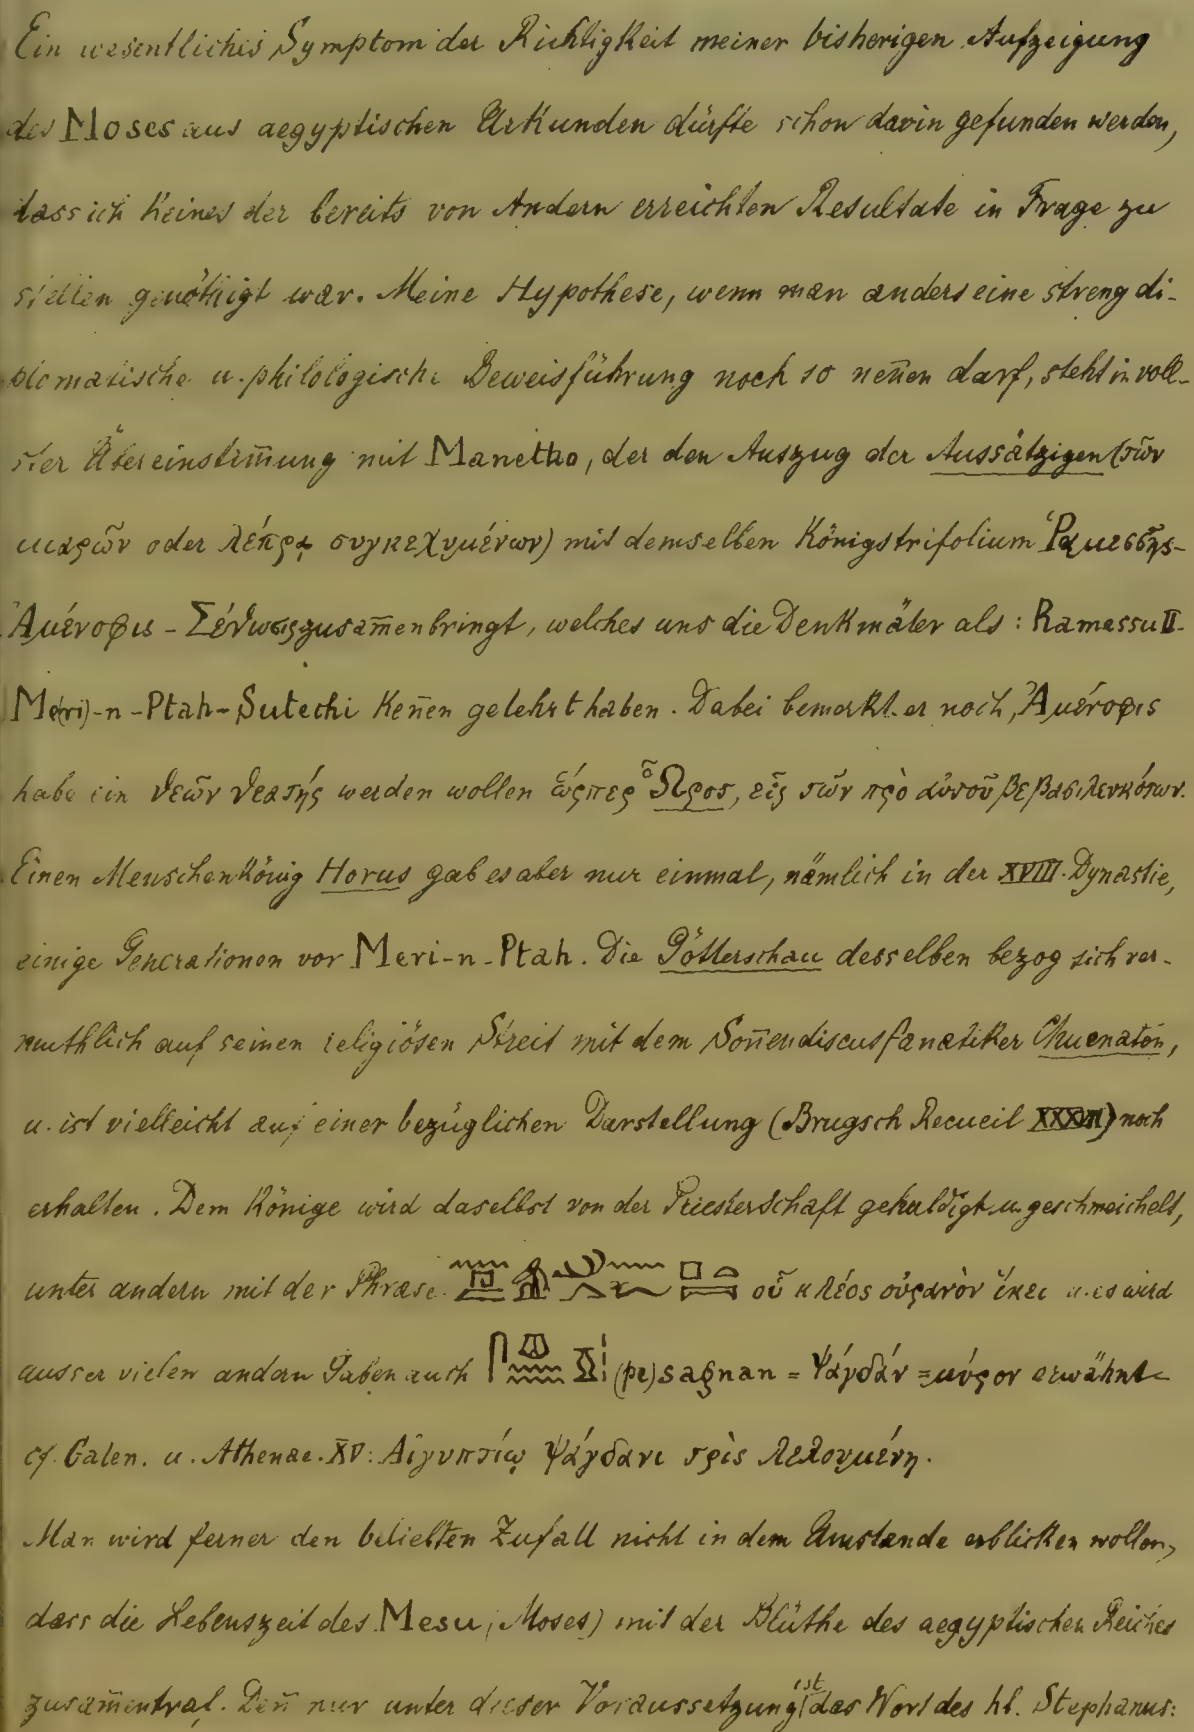 Ein wesentliches Symptom der Richtigkeit meiner bisherigen Aufzeigung
des Moses aus aegyptischen Urkunden dürfte schon darin gefunden werden,
dass ich keines der bereits von Andern erreichten Resultate in Frage zu
stellen genöthigt war. Meine Hypothese, wenn man anders eine streng di-
plomatische u. philologische Beweisführung noch so nen̄en darf, steht in voll-
ster Übereinstim̄ung mit Manetho, der den Auszug der Aussätzigen (τῶν
μιαρῶν oder λέπρᾳ συγκεχυμένων) mit demselben Königstrifolium Ῥαμεσσῆς-
Ἀμένοφις - Σέθωσις zusam̄enbringt, welches uns die Denkmäler als: Ramessu II-
Me(ri)-n-Ptah-Sutechi ken̄en gelehrt haben. Dabei bemerkt er noch, Ἀμένοφις
habe ein θεῶν θεατής werden wollen ὥςπερ Ὧρος, εἷς τῶν πρὸ αὐτοῦ βεβασιλευκότων.
Einen Menschenkönig Horus gab es aber nur einmal, nämlich in der XVIII. Dynastie,
einige Generationen vor Meri-n-Ptah. Die Götterschau desselben bezog sich ver-
muthlich auf seinen religiösen Streit mit dem Son̄endiscusfanatiker Chuenatén,
u. ist vielleicht auf einer bezüglichen Darstellung (Brugsch Recueil) noch
erhalten. Dem Könige wird daselbst von der Priesterschaft gehuldigt u. geschmeichelt,
unter andern mit der Phrase οὗ κλέος οὐρανὸν ἵκει u. es wird
ausser vielen andern Gaben auch (pe)sagnan = Ψάγδάν = μύρον erwähnt
cf. Galen. u. Athenae. XV: Αἰγυπτίῳ ψάγδανι τρὶς λελουμένη.
Man wird ferner den beliebten Zufall nicht in dem Umstande erblicken wollen,
dass die Lebenszeit des Mesu (Moses) mit der Blüthe des aegyptischen Reiches
zusam̄entraf. Den̄ nur unter dieser Voraussetzung ist das Wort des hl. Stephanus: